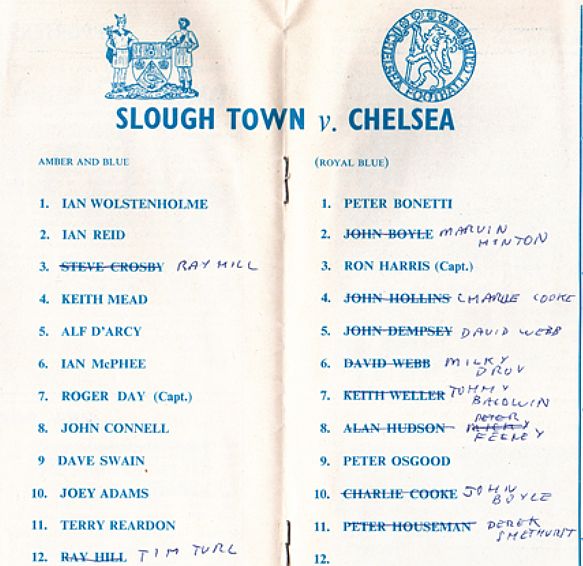 SLOUGH TOWN v. CHELSEA
AMBER AND BLUE
1. IAN WOLSTENHOLME
2. IAN REID
3. STEVE CROSBY RAY HILL
4. KEITH MEAD
5. ALF D'ARCY
6. IAN McPHEE
7. ROGER DAY (Capt.)
8. JOHN CONNELL
9 DAVE SWAIN
10. JOEY ADAMS
11. TERRY REARDON
12. RAY HILL TIM TURL
CHELSEA FOOTBALL CLUB
(ROYAL BLUE)
1. PETER BONETTI
2. JOHN BOYLE MARVIN
HINTON
3. RON HARRIS (Capt.)
4. JOHN HOLLINS CHARLIE COOKE
5. JOHN DEMPSEY DAVID WEBB
6. DAVID WEBB MICKY
DROY
7. KEITH WELLER TOMMY
BALDWIN
PETER
8. ALAN HUDSON MICKY
FEELEY
9. PETER OSGOOD
10. CHARLIE COOKE JOHN
BOYLE
11. PETER HOUSEMAN DEREK
SMETHURST
12.